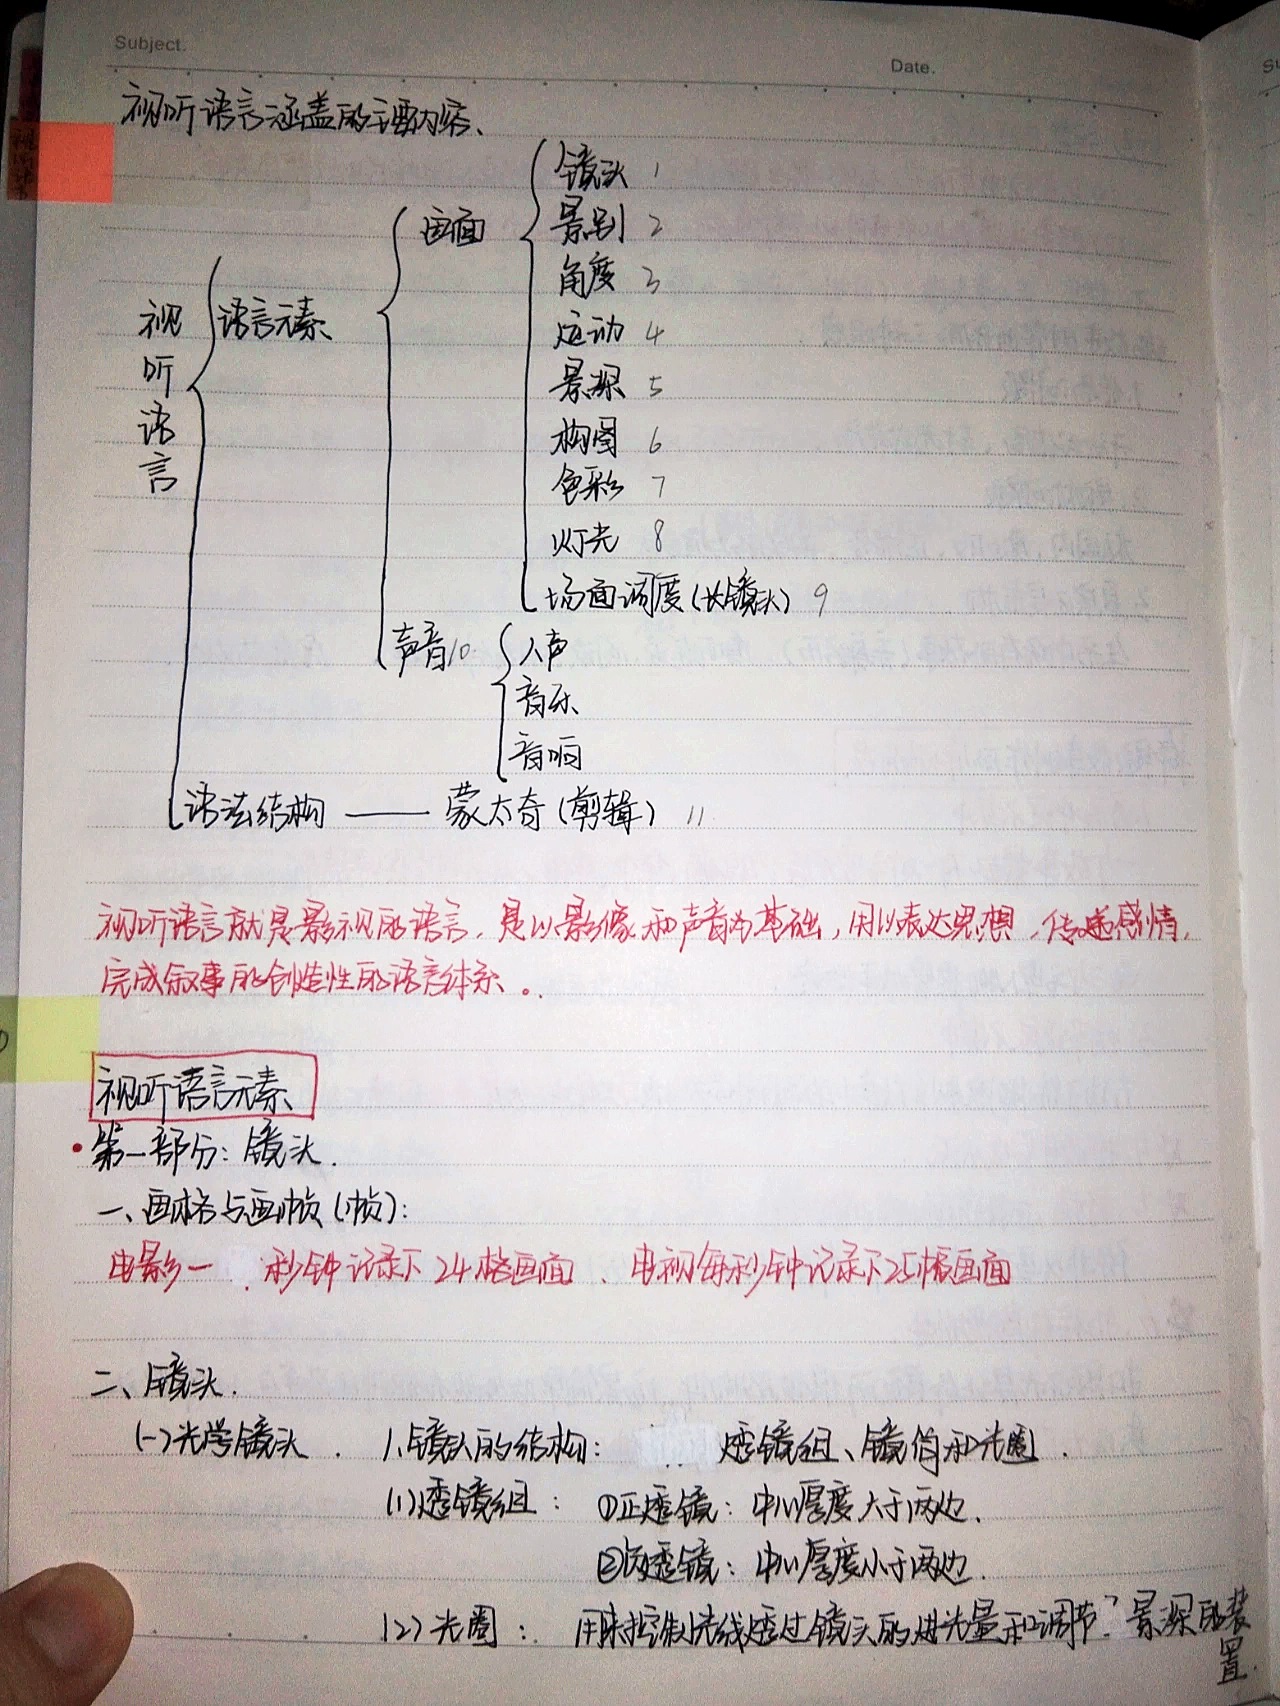 Subject.
Date.
视听语言涵盖的主要内容、
镜头 1
画面
景别 2
角度 3
语言元素
运动 4
视听语言
景深 5
构图 6
色彩 7
灯光 8
场面调度(长镜头) 9
声音10
人声
音乐
音响
语法结构 —— 蒙太奇(剪辑) 11
视听语言就是影视的语言,是以影像和声音为基础,用以表达思想,传递感情,
完成叙事的创造性的语言体系。
视听语言元素
第一部分:镜头.
一、画格与画帧(帧):
电影一 秒钟记录下24格画面、电视每秒钟记录下25帧画面
二、镜头.
(一)光学镜头. 1.镜头的结构: 透镜组、镜筒和光圈.
(1)透镜组: ①正透镜:中心厚度大于两边.
②负透镜:中心厚度小于两边.
(2)光圈: 用来控制光线透过镜头的进光量和调节景深的装置.